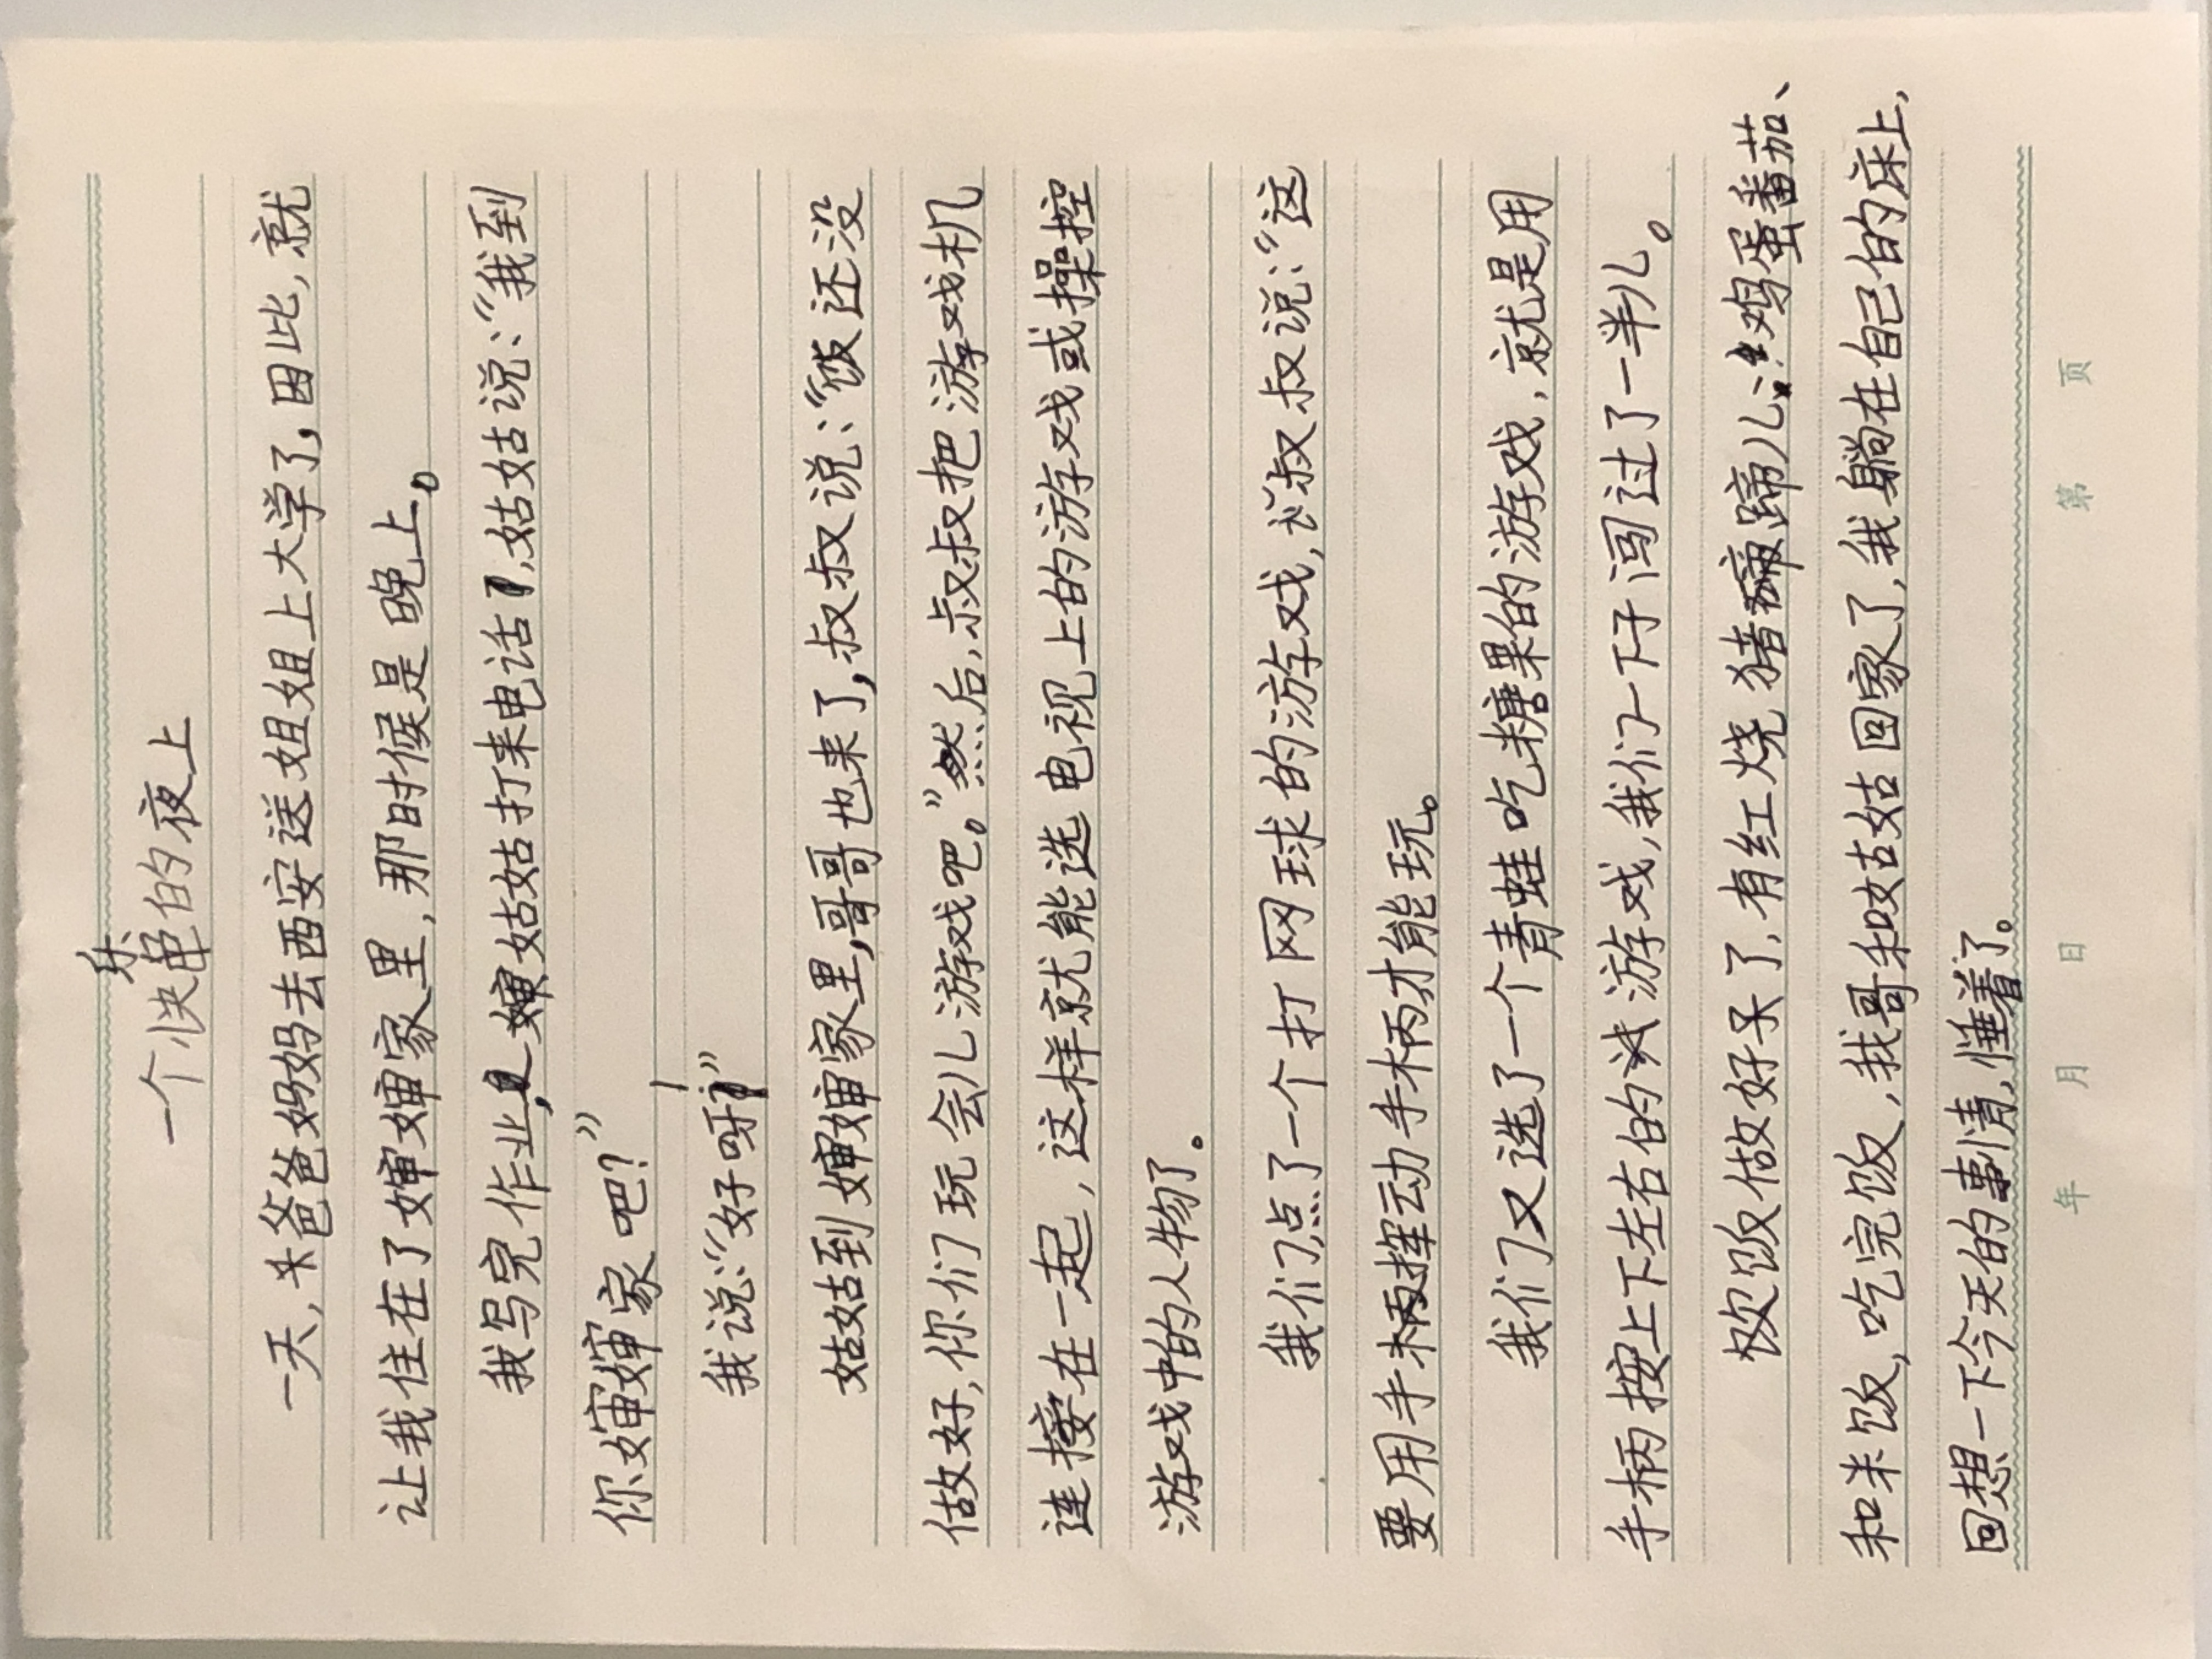 一个快乐的夜上
一天,爸爸妈妈去西安送姐姐上大学了,因此,就
让我住在了婶婶家里,那时候是晚上。
我写完作业,姑姑打来电话,姑姑说:“我到
你婶婶家吧?”
我说:“好呀!”
姑姑到婶婶家里,哥哥也来了,叔叔说:“饭还没
做好,你们玩会儿游戏吧。”然后,叔叔把游戏机
连接在一起,这样就能选电视上的游戏或操控
游戏中的人物了。
我们点了一个打网球的游戏,叔叔说:“这
要用手柄挥动手柄才能玩。
我们又选了一个青蛙吃糖果的游戏,就是用
手柄按上下左右的游戏,我们一下子闯过了一半儿。
饭做好了,有红烧猪蹄儿、鸡蛋番茄、
和米饭,吃完饭,我哥和姑姑回家了,我躺在自己的床上,
回想一下今天的事情,睡着了。
年 月 日 第 页